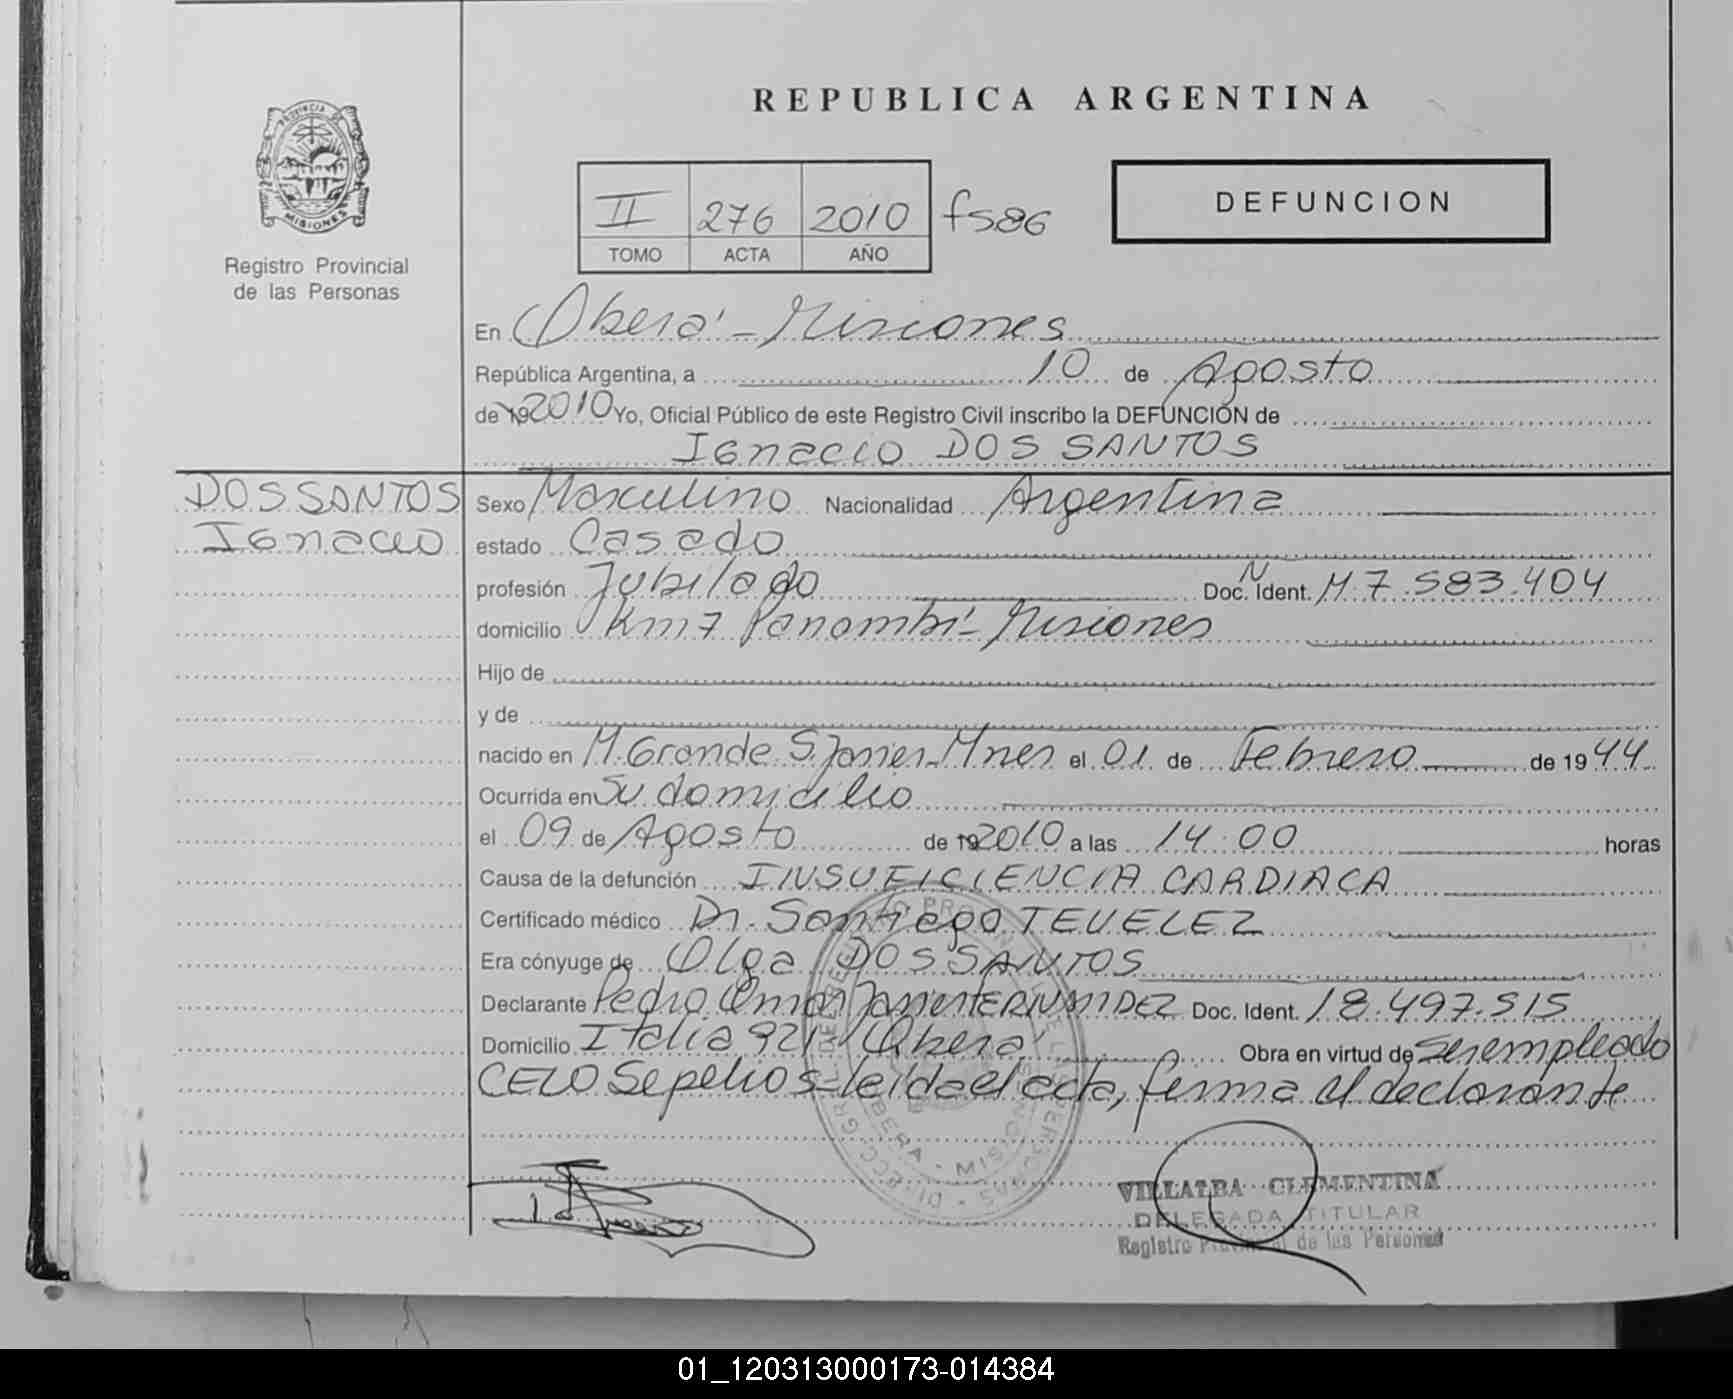 REPUBLICA ARGENTINA
PROVINCIA DE MISIONES
Registro Provincial
de las Personas
II 276 2010 fs86
TOMO ACTA AÑO
DEFUNCION
En Oberá - Misiones
República Argentina, a 10 de Agosto
de 19 2010 Yo, Oficial Público de este Registro Civil inscribo la DEFUNCIÓN de
Ignacio DOS SANTOS
DOS SANTOS
Ignacio
Sexo Masculino Nacionalidad Argentina
estado Casado
profesión Jubilado Doc. N Ident. M 7.583.404
domicilio Km 7 Panambí - Misiones
Hijo de
y de
nacido en M. Grande S. Javier - Mnes el 01 de Febrero de 1944
Ocurrida en Su domicilio
el 09 de Agosto de 19 2010 a las 14:00 horas
Causa de la defunción INSUFICIENCIA CARDIACA
Certificado médico Dr. Santiago TEVELEZ
Era cónyuge de Olga DOS SANTOS
Declarante Pedro Omar Javier FERNANDEZ Doc. Ident. 18.497.515
Domicilio Italia 921 - Oberá Obra en virtud de ser empleado
CELO Sepelios - leída el acta, firma el declarante
OBERA - MISIONES
VILLALBA CLEMENTINA
DELEGADA TITULAR
Registro Provincial de las Personas
01_120313000173-014384